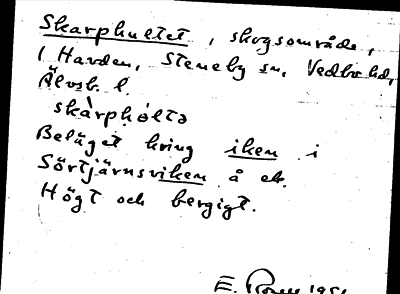 Skarphultet, skogsområde,
i Havden, Steneby sn, Vedbo hd,
Älvsb. l.
skàrphóltə
Beläget kring iken i
Sörtjärnsviken å ek.
Högt och bergigt.
E. 1951